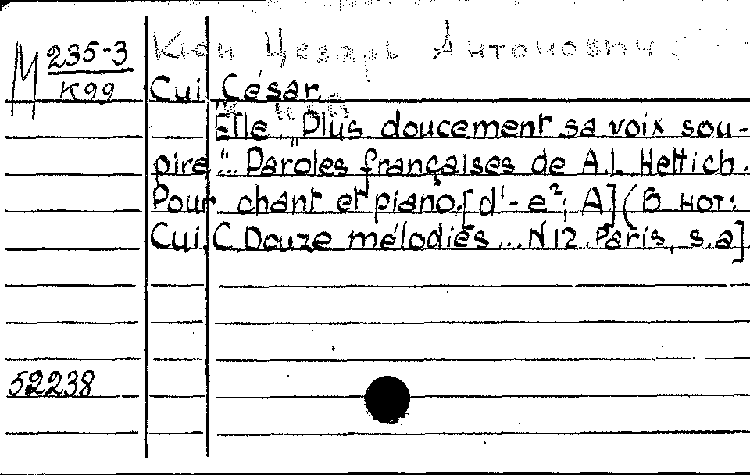 М 235-3
К99
Кюи Цезарь Антонович
Cui César
Elle „Plus doucement sa voix sou-
pire“. Paroles françaises de A.L. Hettich.
Pour chant et piano.[d'-e²; A](В нот:
Cui, C. Douze mélodies... N 12. Paris, s.a]
52238